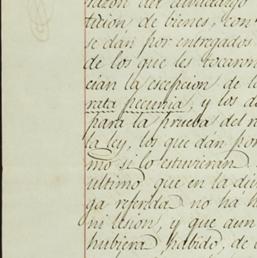 razon del dividendo
tucion de bienes, con
se dán por entregados
de los que les tocaron
cian la escepcion de la
rata pecunia, y los d
para la prueba del re
la ley, los que dán por
mo si lo estuvieran
ultimo que en la divi
ga referida no ha h
ni lesion, y que aun
hubiera habido, de